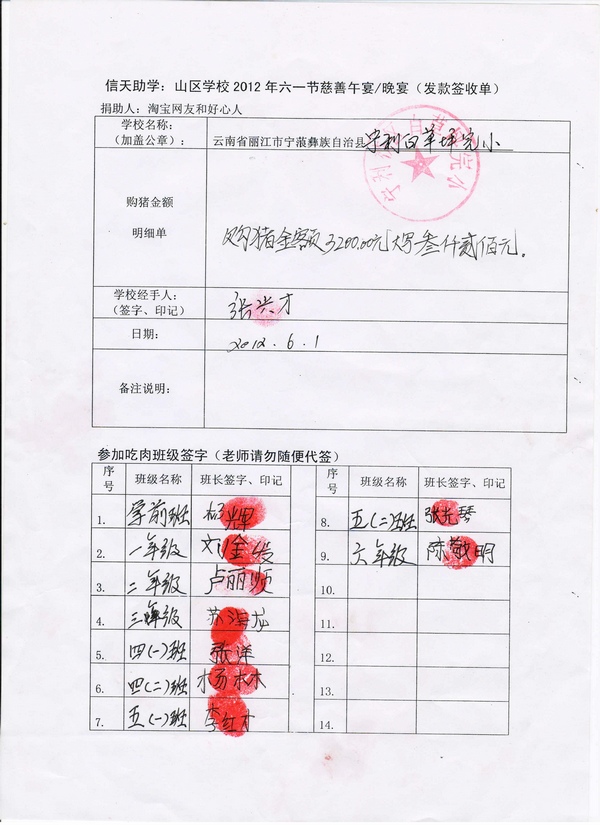 信天助学：山区学校2012年六一节慈善午宴/晚宴（发款签收单）
捐助人：淘宝网友和好心人
学校名称：
（加盖公章）：
云南省丽江市宁蒗彝族自治县宁利白草坪完小
购猪金额
明细单
购猪金额3200.00元大写叁仟贰佰元。
学校经手人：
（签字、印记）
张兴才
日期：
2012.6.1
备注说明：
参加吃肉班级签字（老师请勿随便代签）
序号 班级名称 班长签字、印记 序号 班级名称 班长签字、印记
1. 学前班 杨辉
2. 一年级 刘金发
3. 二年级 卢丽顺
4. 三年级 苏海龙
5. 四(一)班 张洋
6. 四(二)班 杨林
7. 五(一)班 李红才
8. 五(二)班 张光琴
9. 六年级 陈敬明
10.
11.
12.
13.
14.